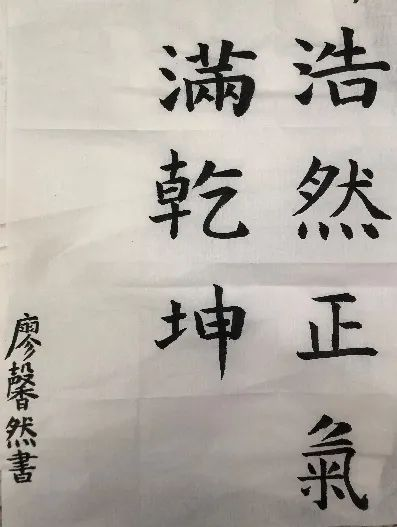 浩然正氣
滿乾坤
廖馨然書